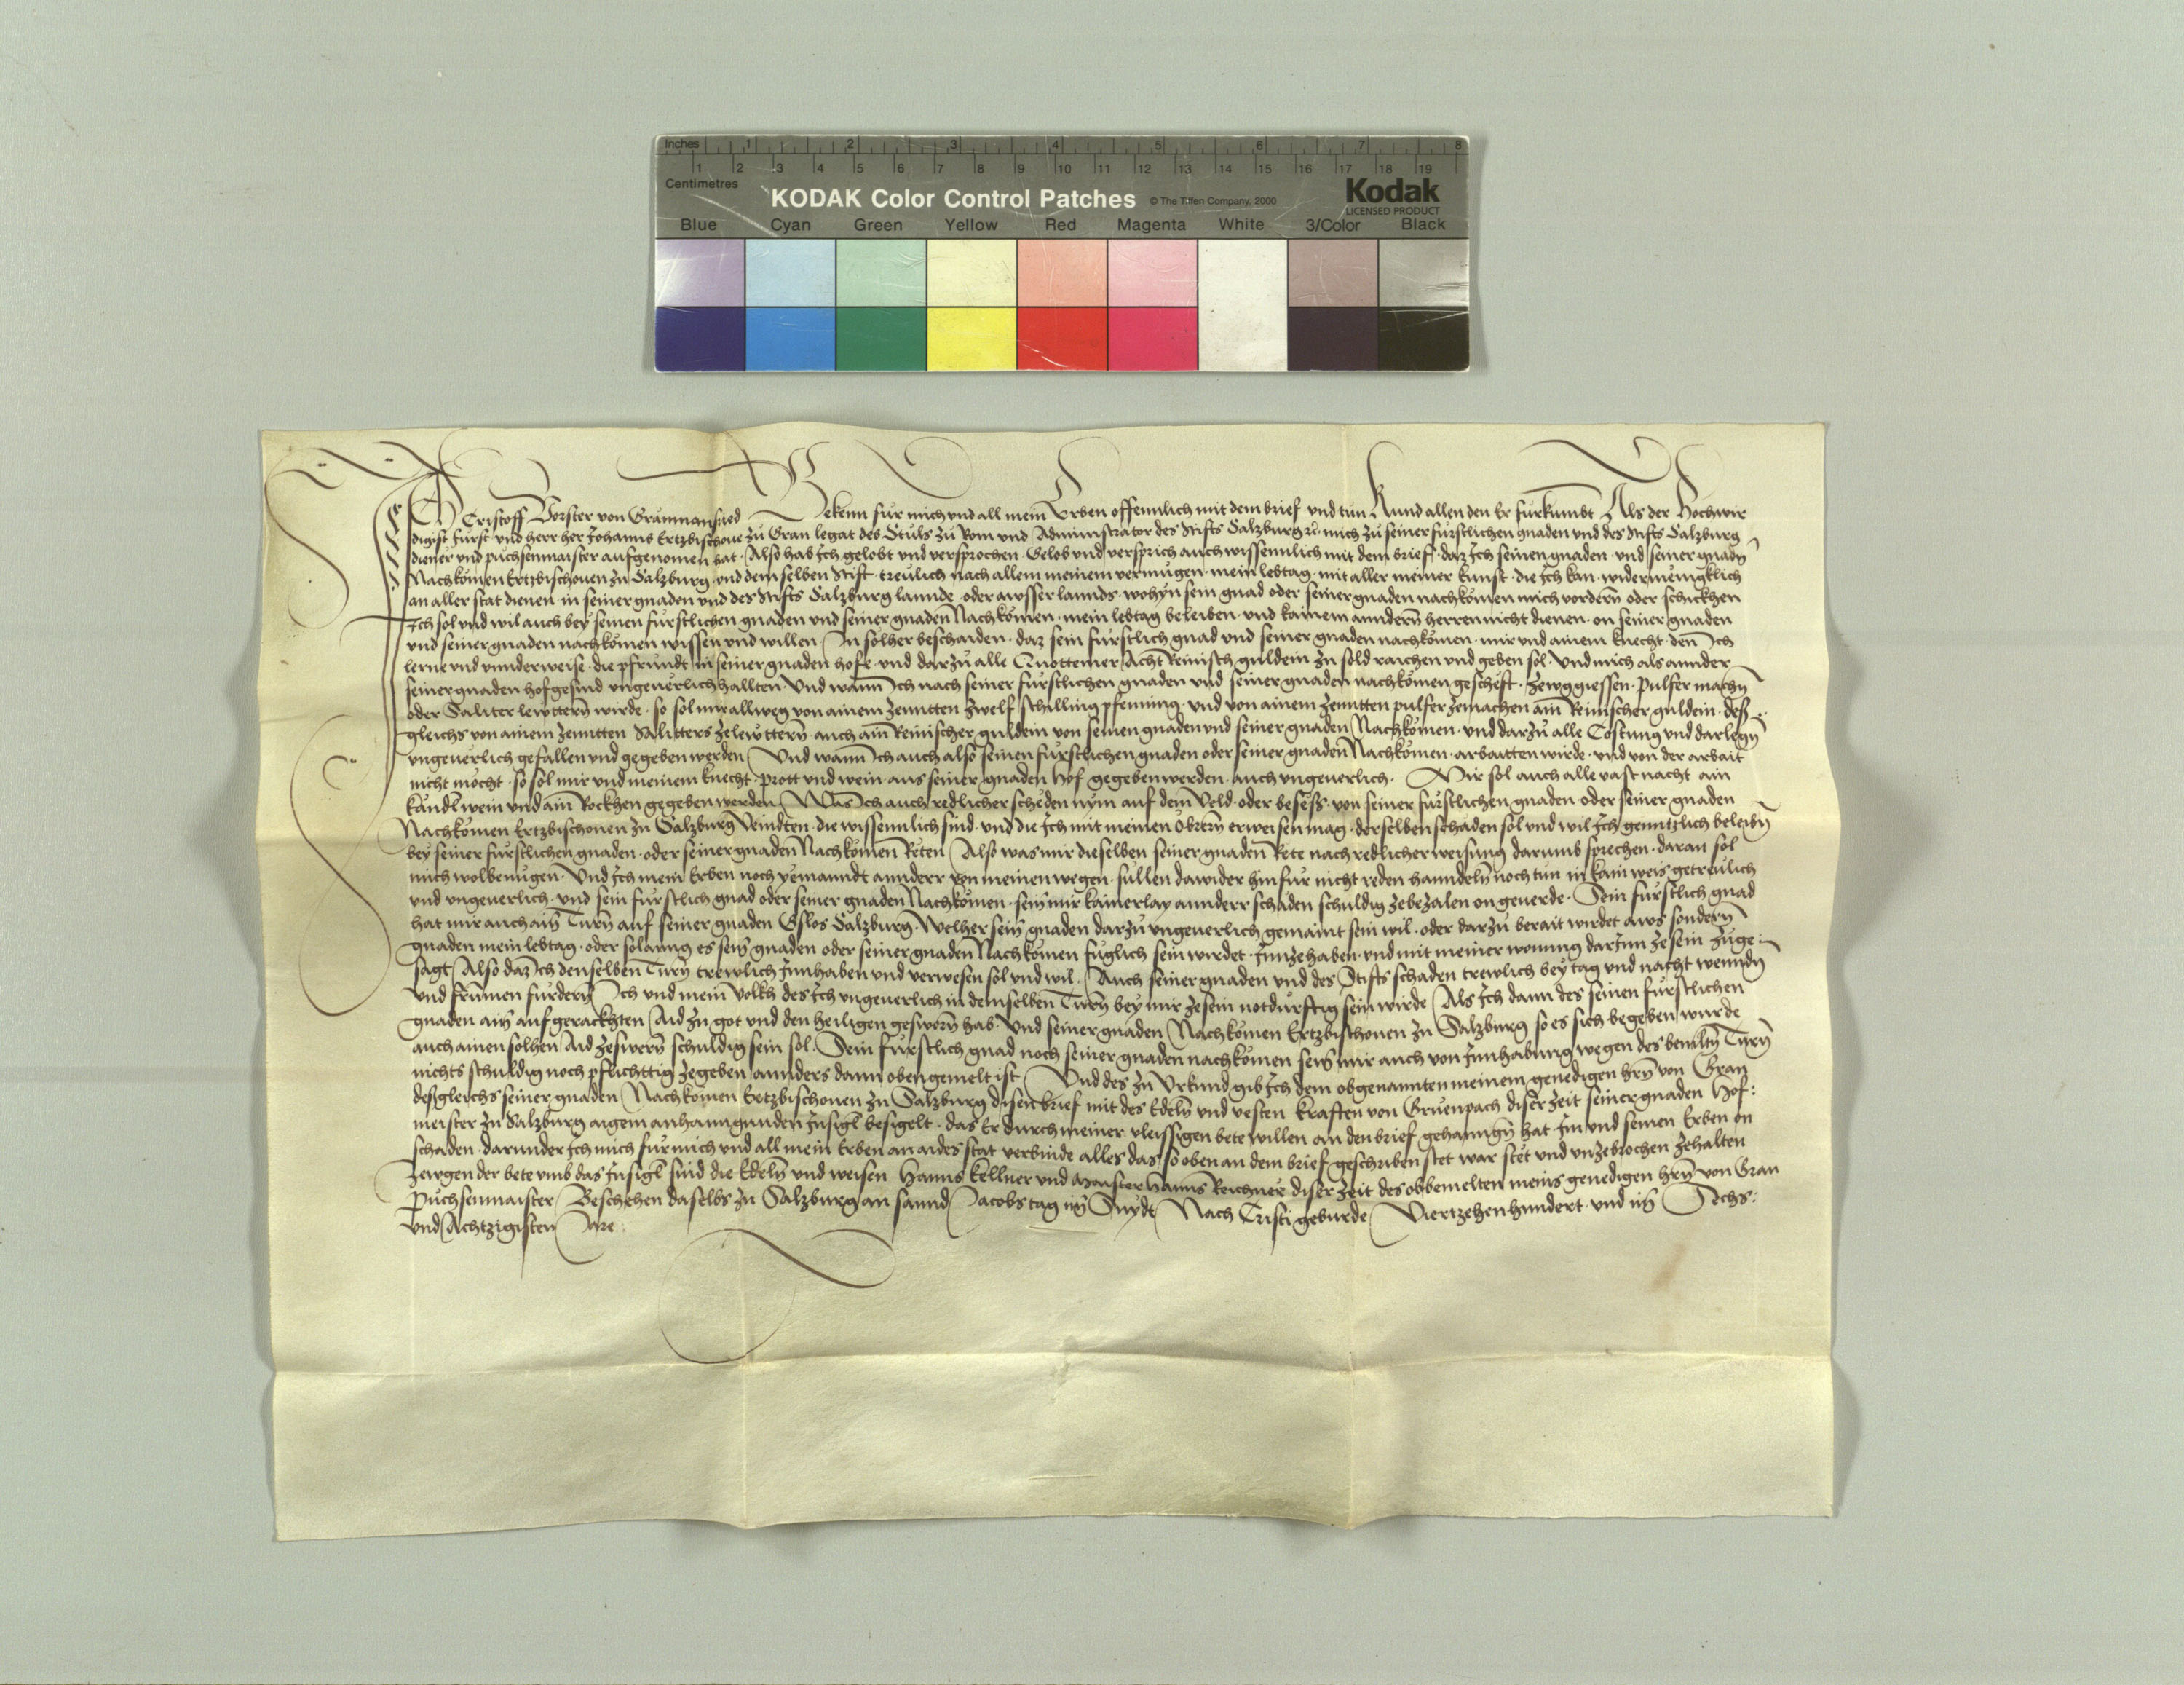 Inches 1 2 3 4 5 6 7 8
1 2 3 4 5 6 7 8 9 10 11 12 13 14 15 16 17 18 19
Centimetres
KODAK Color Control Patches © The Tiffen Company, 2000 Kodak
LICENSED PRODUCT
Blue Cyan Green Yellow Red Magenta White 3/Color Black
Ich Cristoff Vorster von Bekenn für mich vnd all mein Erben offennlich mit dem brief vnd tun Kund allen den Er fürkumbt Als der Hochwir
digist fürst vnd herr her Johanns Ertzbischoue zu Gran legat des Stuls zu Rom vnd Administrator des Stifts Saltzburg mich zu seiner fürstlichen gnaden vnd des Stifts Saltzburg
diener vnd puchsenmaister aufgenomen hat · Also hab Ich gelobt vnd versprochen · Gelob vnd versprich auch wissennlich mit dem brief · daz Ich seinen gnaden · vnd seiner gnadn
Nachkömen Ertzbischouen zu Saltzburg vnd dem selben Stift · treulich nach allem meinem vermugen · mein lebtag · mit aller meiner kunst · die Ich kan · wider menigklich
an aller stat dienen in seiner gnaden vnd des Stifts Saltzburg lannde · oder ausser lannds · wohyn sein gnad oder seiner gnaden nachkömen mich vordern oder schickhen
Ich sol vnd wil auch bey seinen fürstlichen gnaden vnd seiner gnaden Nachkömen · mein lebtag beleiben · vnd kainem anndern herren nicht dienen · on seiner gnaden
vnd seiner gnaden nachkömen wissen vnd willen In solher beschaiden · daz sein fürstlich gnad vnd seiner gnaden nachkömen · mir vnd ainem knecht · den Ich
lerne vnd vnnderweise · die pfründt in seiner gnaden hofe · vnd darzu alle Quottemer Acht Reinisch guldein zu sold raichen vnd geben sol · Vnd mich als annder
seiner gnaden hofgesind vngeuerlich hallten · Vnd wann Ich nach seiner fürstlichen gnaden vnd seiner gnaden nachkömen gescheft · Zewggiessen · Pulfer machn
oder Saliter lewttern wirde · so sol mir allweg von ainem zenntten zwelf schilling pfenning · vnd von ainem zenntten pulfer zemachen ain Reinischer guldein · deß
gleichs von ainem zenntten Salitters zelewttern auch ain Reinischer guldein von seinen gnaden vnd seiner gnaden Nachkömen · vnd darzu alle Costung vnd darlegn
vngeuerlich gefallen vnd gegeben werden Vnd wann Ich auch also seinen fürstlichen gnaden oder seiner gnaden Nachkömen · arbaitten wirde · vnd von der arbait
nicht möcht · so sol mir vnd meinem knecht · prott vnd wein · aus seiner gnaden hof gegeben werden · auch vngeuerlich · Mir sol auch alle vast nacht ain
kändl wein vnd ain Rockhen gegeben werden Was Ich auch redlicher scheden nym auf dem Veld · oder besëss · von seiner fürstlichen gnaden · oder seiner gnaden
Nachkömen Ertzbischouen zu Saltzburg Veindten · die wissennlich sind · vnd die Ich mit meinen Obrern erweisen mag · derselben scheden sol vnd wil Ich genntzlich beleibn
bey seiner fürstlichen gnaden · oder seiner gnaden Nachkömen Reten Also was mir dieselben seiner gnaden Rete nach redlicher weisung darumb sprechen · daran sol
mich wolbenugen · Vnd Ich mein Erben noch yemanndt annderr von meinen wegen · sullen dawider hinfür nicht reden hanndeln noch tun in kain weis getreulich
vnd vngeuerlich · vnd sein fürstlich gnad oder seiner gnaden Nachkömen · sein mir kainerlay annderr schaden schuldig zebezalen on geuerde · Sein fürstlich gnad
hat mir auch ain Turn auf seiner gnaden Gslos Saltzburg · Welher sein gnaden darzu vngeuerlich gemaint sein wil · oder darzu berait wirdet aws sondern
gnaden mein lebtag · oder solanng es sein gnaden oder seiner gnaden Nachkömen füglich sein wirdet · Innzehaben · vnd mit meiner wonung darInn ze sein zuge
sagt Also daz Ich denselben Turn trewlich Innhaben vnd verwesen sol vnd wil · Auch seiner gnaden vnd des Stifts schaden trewlich bey tag vnd nacht wenndn
vnd frumen fürdern Ich vnd mein Volkh des Ich vngeuerlich in demselben Turn bey mir zesein notdürftig sein wirde Als Ich dann des seinen fürstlichen
gnaden ain aufgerackhten Aid zu got vnd den heiligen gesworn hab · Vnd seiner gnaden Nachkömen Ertzbischouen zu Saltzburg so es sich begeben wurde
auch ainen solhen Aid zeswern schuldig sein sol · Sein fürstlich gnad noch seiner gnaden nachkömen sein mir auch von Innhabung wegen des Turn
nichts schuldig noch pflichttig zegeben annders dann oben gemelt ist Vnd des zu Vrkund gib Ich dem obgenannten meinem genedigen hrn von Gran
desgleichs seiner gnaden Nachkömen Ertzbischouen zu Saltzburg disen brief mit des Edeln vnd vesten Kraften von Gruenpach diser zeit seiner gnaden Hof:
meister zu Saltzburg aigem anhanngunden Insigl besigelt · das Er durch meiner vleissigen bete willen an den brief gehanngn hat Im vnd seinen Erben on
schaden · darunder Ich mich für mich vnd all mein Erben an aides stat verbinde alles das so oben an dem brief geschriben stet war stët vnd vnzebrochen zehalten
Zewgen der bete vmb das Insigl sind die Edeln vnd weisen Hanns Kellner vnd Maister Hanns Reichner diser zeit des obbemelten meins genedigen hrn von Gran
Puchsenmaister Beschehen daselbs zu Saltzburg an sannd Jacobs tag im Snydt Nach Cristi geburde Viertzehenhundert · vnd im Sechs:
vnd Achtzigisten Jare